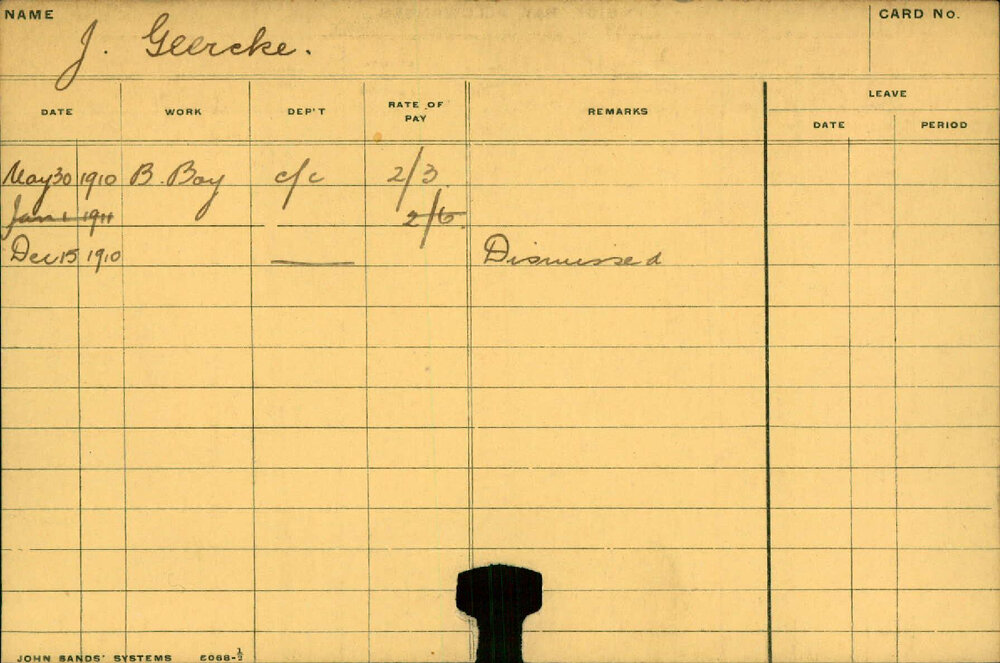 NAME
J. Geercke.
CARD No.
DATE WORK DEP'T RATE OF PAY REMARKS LEAVE
DATE PERIOD
May 30 1910 B. Boy c/c 2/3
Jan 1 1911 2/6.
Dec 15 1910 Dismissed
JOHN SANDS' SYSTEMS 6068-½